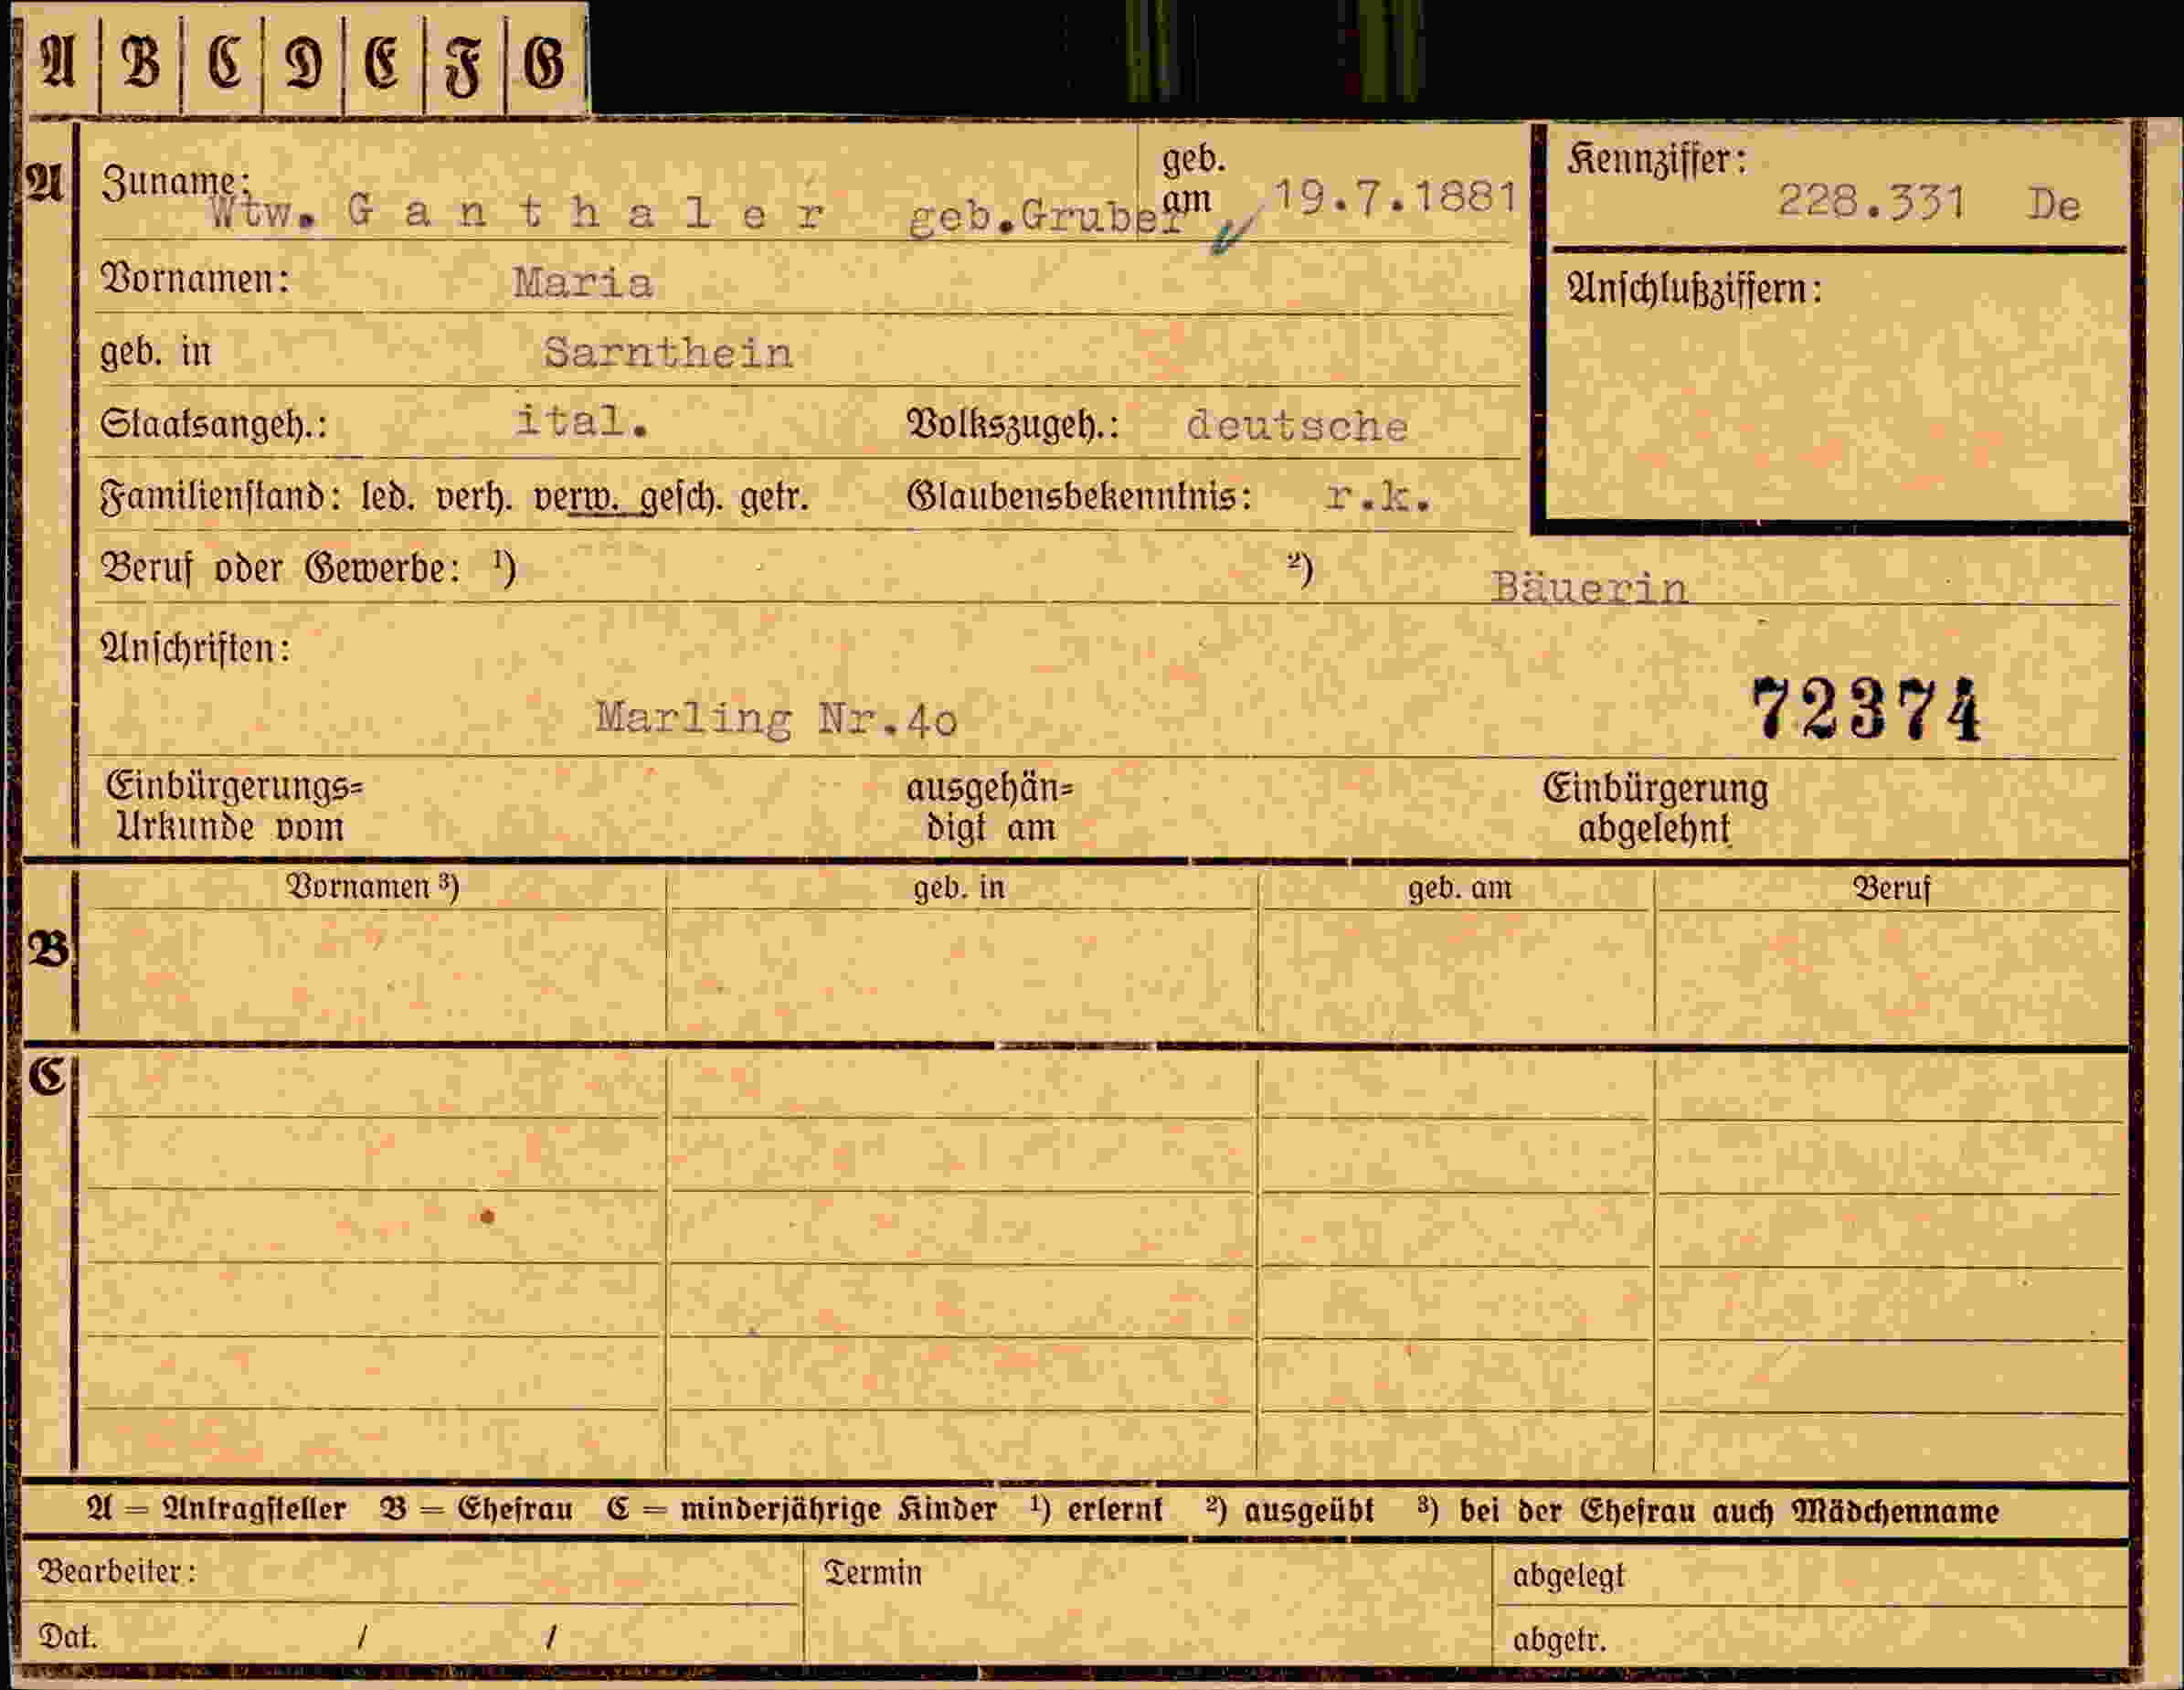 A B C D E F G
A Zuname: Wtw. G a n t h a l e r geb.Gruber geb. am 19.7.1881
Kennziffer: 228.331 De
Vornamen: Maria
Anschlußziffern:
geb. in Sarnthein
Staatsangeh.: ital. Volkszugeh.: deutsche
Familienstand: led. verh. verw. gesch. getr. Glaubensbekenntnis: r.k.
Beruf oder Gewerbe: ¹) ²) Bäuerin
Anschriften:
Marling Nr.4o 72374
Einbürgerungs= ausgehän= Einbürgerung
Urkunde vom digt am abgelehnt
Vornamen ³) geb. in geb. am Beruf
B
C
A = Antragsteller B = Ehefrau C = minderjährige Kinder ¹) erlernt ²) ausgeübt ³) bei der Ehefrau auch Mädchenname
Bearbeiter: Termin abgelegt
Dat. / / abgetr.